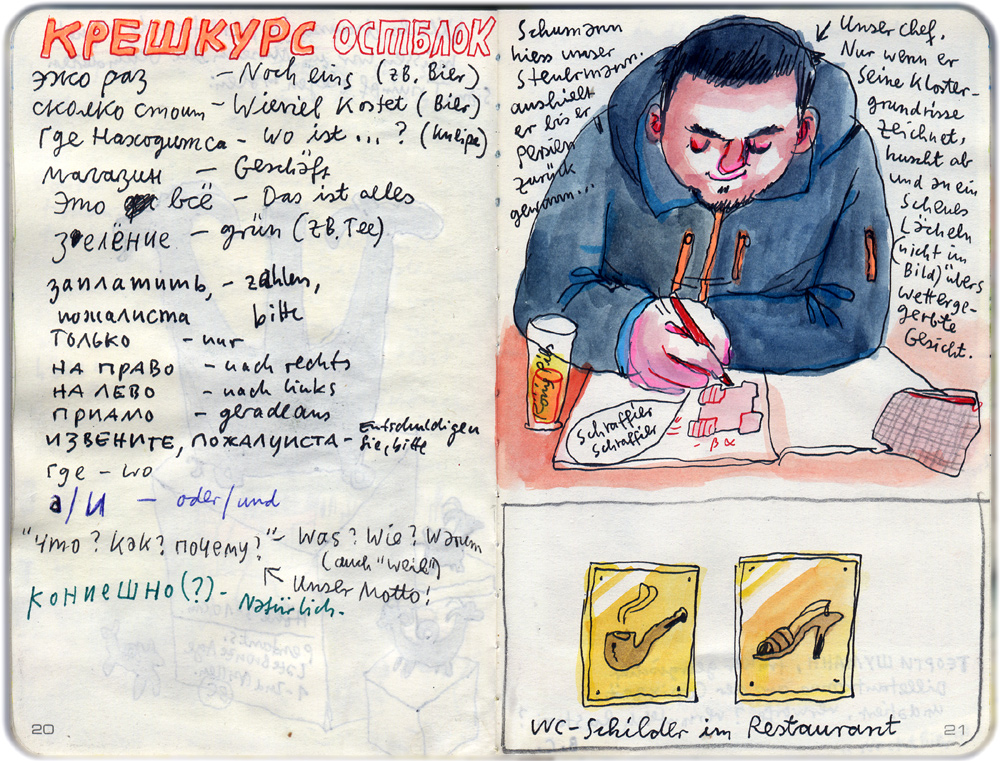 КРЕШКУРС ОСТБЛОК
эжо раз - Noch eins (zB. Bier)
сколко стоит - Wieviel kostet (Bier)
где находитса - wo ist ... ? (Kneipe)
магазин - Geschäft
Это всё - Das ist alles
зелёние - grün (zB. Tee)
заплатить, - zahlen,
пожалиста bitte
только - nur
НА ПРАВО - nach rechts
НА ЛЕВО - nach links
ПРИАМО - geradeaus
ИЗВЕНИТЕ, ПОЖАЛУИСТА - Entschuldigen
Sie, bitte
где - wo
а/И - oder/und
"Что? Как? почему?" - Was? Wie? Warum
(auch "weil")
Unser Motto!
КОНИЕШНО(?) - Natürlich.
20
Schumann
hiess unser
Steuermann.
aushielt
er bis er
Persien
zurück
gewann...
Unser Chef.
Nur wenn er
seine Kloster-
grundrisse
zeichnet,
huscht ab
und an ein
scheues
Lächeln
(nicht im
Bild) übers
wetterge-
gerbte
Gesicht.
Schraffier
Schraffier
WC-Schilder im Restaurant
21